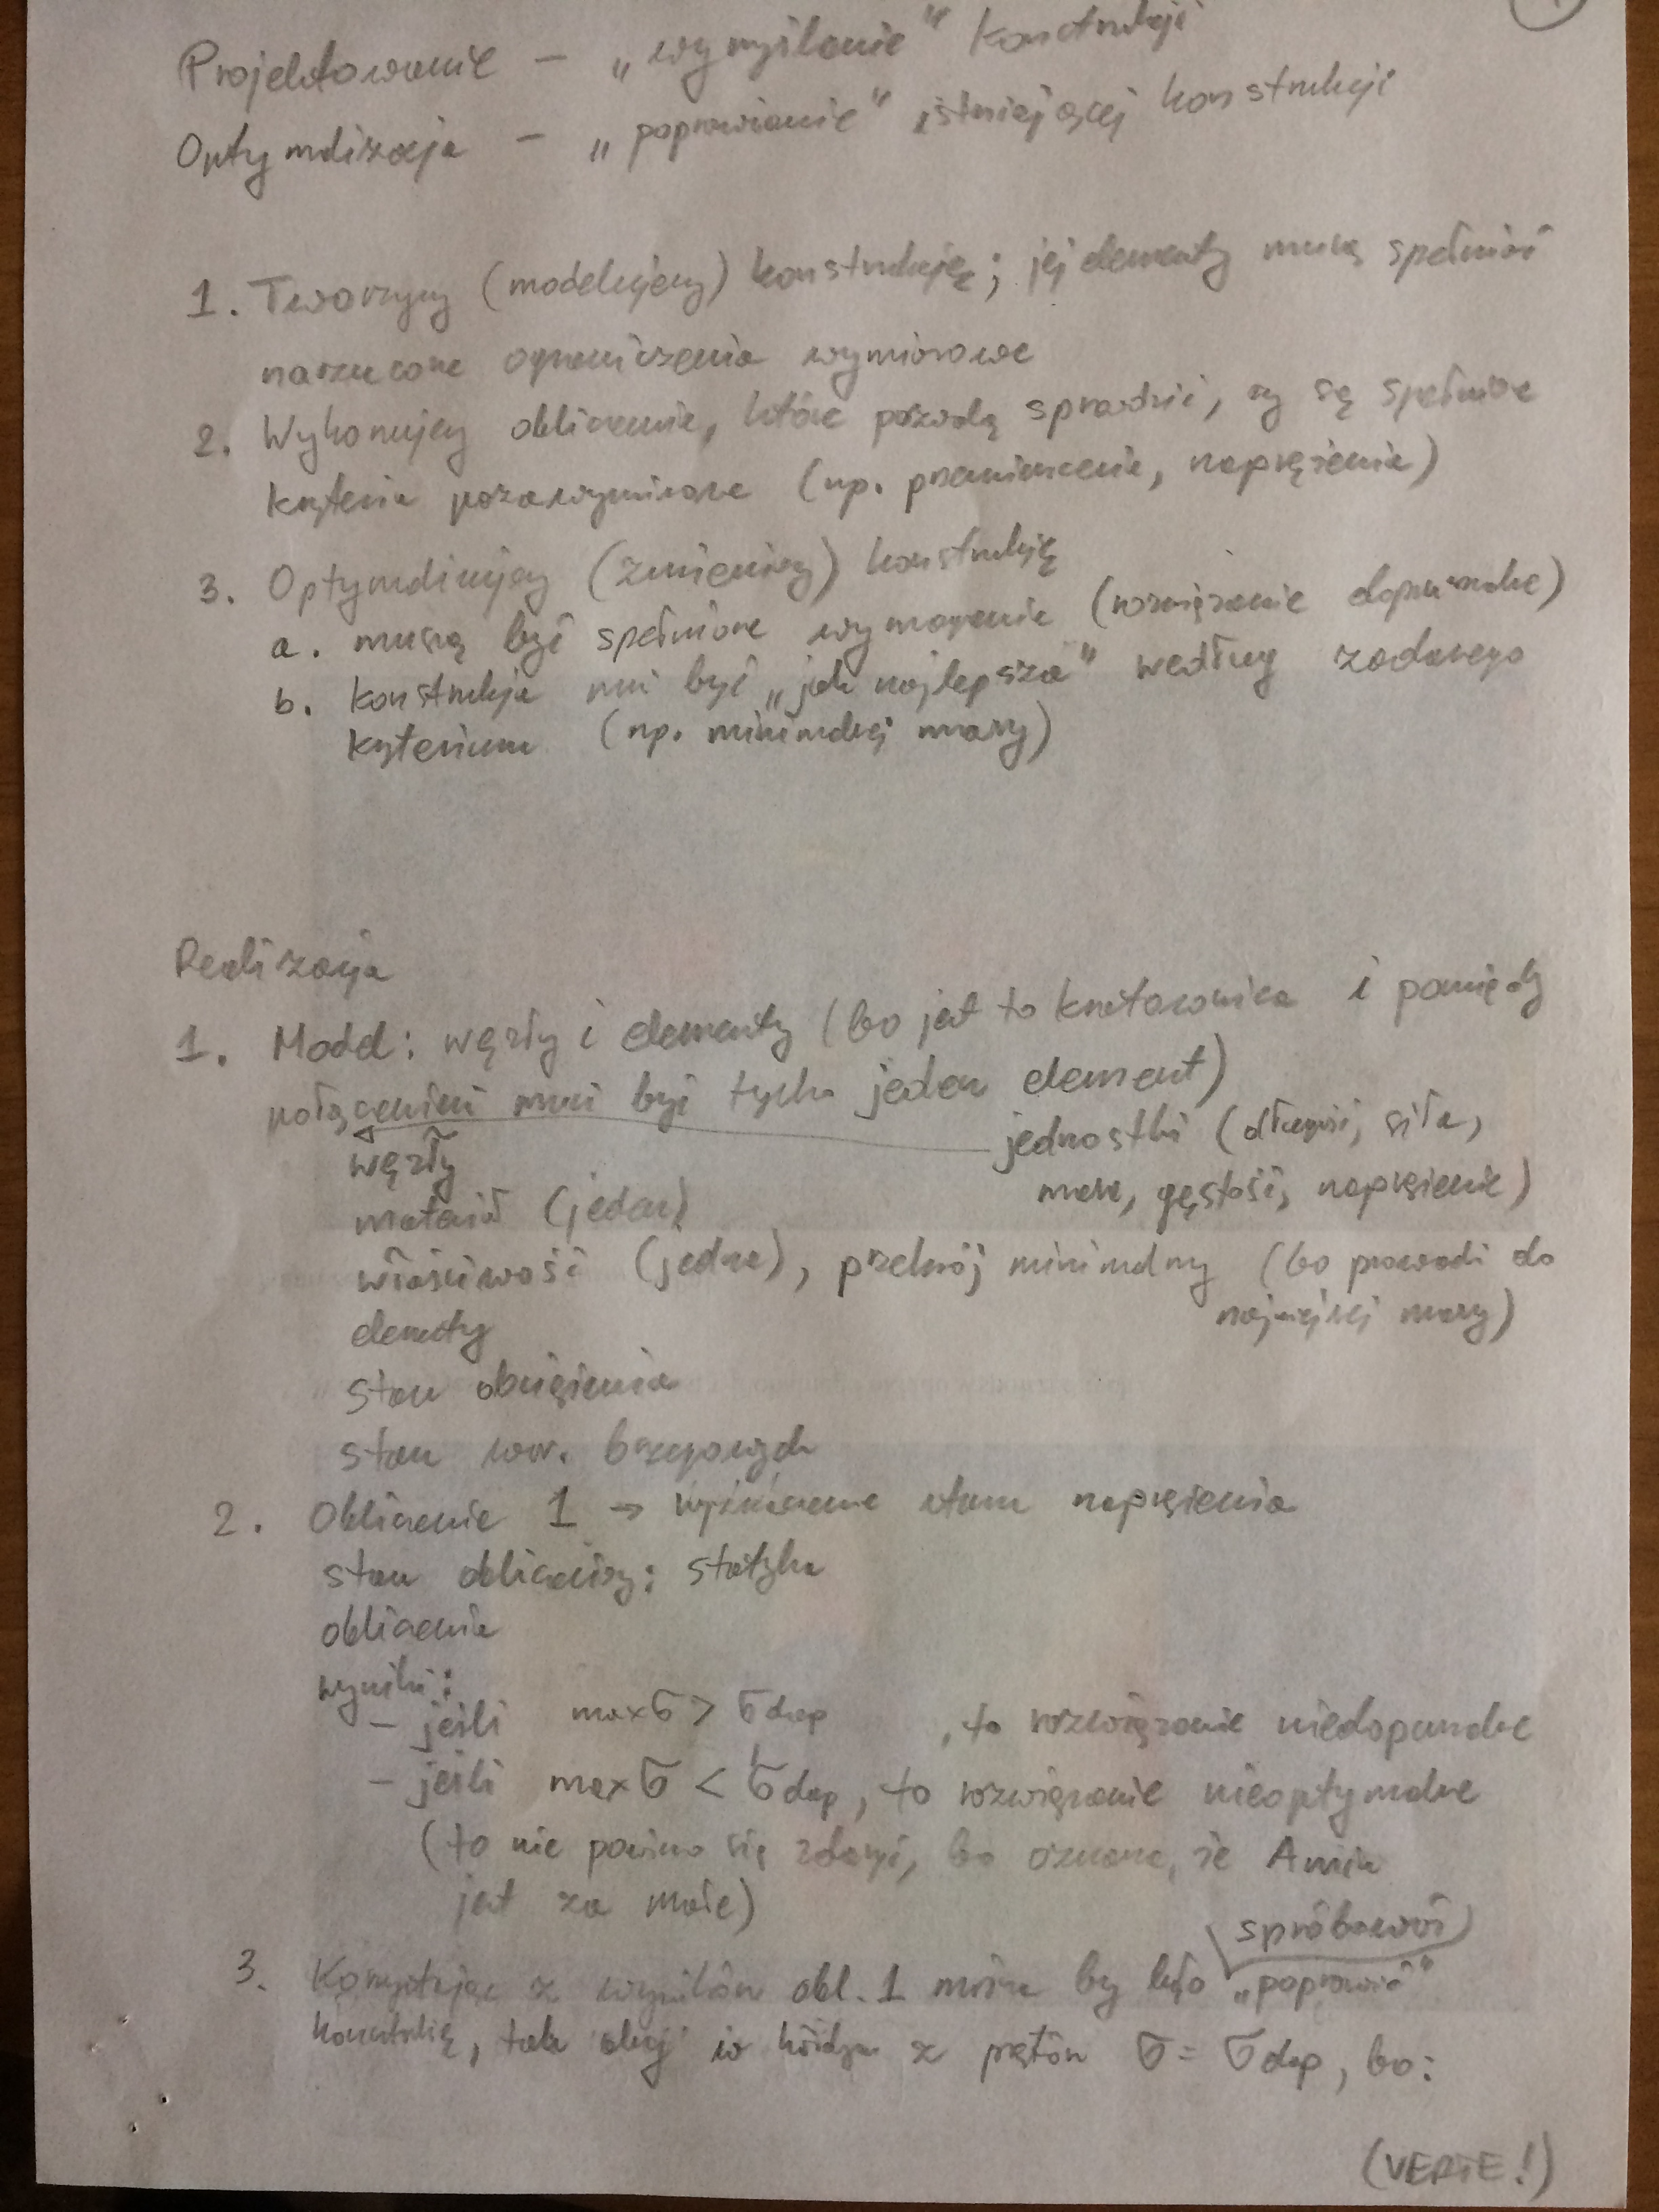 Projektowanie – „wymyślanie” konstrukcji
Optymalizacja – „poprawianie” istniejącej konstrukcji
1. Tworzymy (modelujemy) konstrukcję; jej elementy muszą spełniać
narzucone ograniczenia wymiarowe
2. Wykonujemy obliczenia, które pozwolą sprawdzić, czy są spełnione
kryteria pozawymiarowe (np. przemieszczenia, naprężenia)
3. Optymalizujemy (zmieniamy) konstrukcję
a. muszą być spełnione wymagania (rozwiązanie dopuszczalne)
b. konstrukcja musi być „jak najlepsza” według zadanego
kryterium (np. minimalnej masy)
Realizacja
1. Model: węzły i elementy (bo jest to kratownica i pomiędzy
połączeniami musi być tylko jeden element)
jednostki (długość, siła,
węzły
masa, gęstość, naprężenie)
materiał (jeden)
właściwość (jedna), przekrój minimalny (bo prowadzi do
najmniejszej masy)
elementy
stan obciążenia
stan war. brzegowych
2. Obliczenie 1 → wyznaczenie stanu naprężenia
stan obliczeniowy: statyka
obliczenia
wyniki:
– jeśli max σ > σ dop , to rozwiązanie niedopuszczalne
– jeśli max σ < σ dop, to rozwiązanie nieoptymalne
(to nie powinno się zdarzyć, bo oznacza, że A min
jest za małe)
spróbować
3. Korzystając z wyników obl. 1 można by było „poprawić”
konstrukcję, tak aby w każdym z prętów σ = σ dop, bo:
(VERTE!)